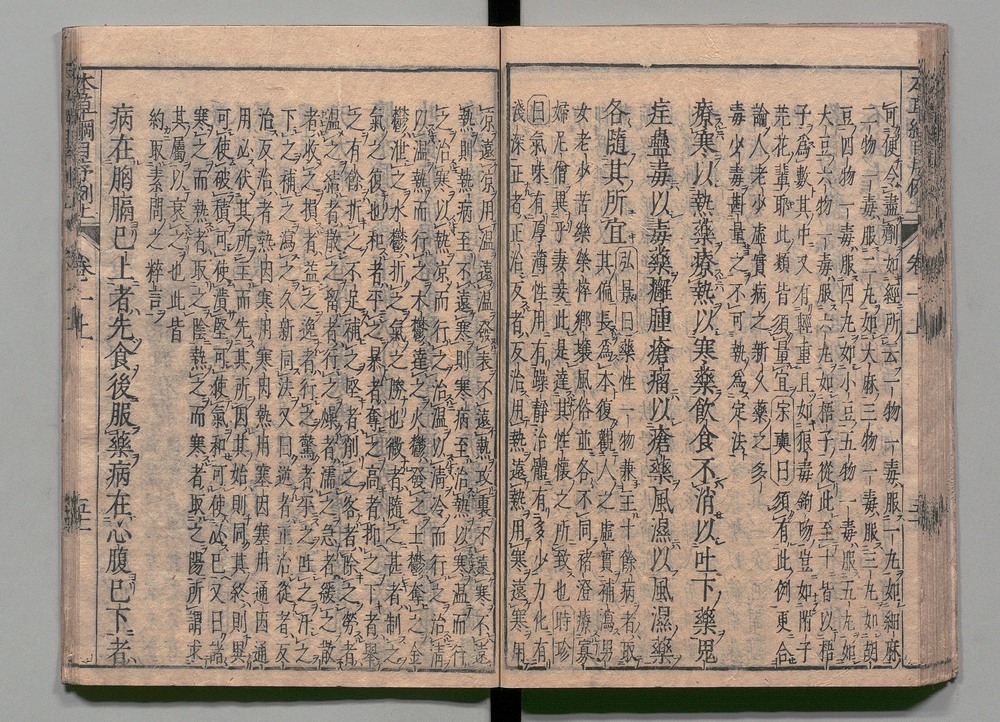 可便令盡劑如經所云一物一毒服一丸如細麻
二物一毒服二丸如大麻三物一毒服三丸如胡
豆四物一毒服四丸如小豆五物一毒服五丸如
大豆六物一毒服六丸如梧子從此至十皆以梧
子爲數其中又有輕重且如狼毒鉤吻豈如附子
芫花輩耶此類皆須量宜宋奭曰須有此例更合
論人老少虛實病之新久藥之多
毒少毒斟量之不可執爲定法
療寒以熱藥療熱以寒藥飲食不消以吐下藥鬼
疰蠱毒以毒藥癰腫瘡瘤以瘡藥風濕以風濕藥
各隨其所宜弘景曰藥性一物兼主十餘病者取
其偏長爲本復觀人之虛實補瀉男
女老少苦樂榮悴鄉壤風俗並各不同褚澄療寡
婦尼僧異乎妻妾此是達其性懷之所致也時珍
曰氣味有厚薄性用有躁靜治體有多少力化有
淺深正者正治反者反治用熱遠熱用寒遠寒用
涼遠涼用温遠温發表不遠熱攻裏不遠寒不遠
熱則熱病至不遠寒則寒病至治熱以寒温而行
之治寒以熱凉而行之治温以清冷而行之治清
以温熱而行之木鬱達之火鬱發之土鬱奪之金
鬱泄之水鬱折之氣之勝也微者隨之甚者制之
氣之復也和者平之暴者奪之高者抑之下者舉
之有餘折之不足補之堅者削之客者除之勞者
温之結者散之留者行之燥者濡之急者緩之散
者收之損者益之逸者行之驚者平之吐之汗之
下之補之瀉之久新同法又曰逆者正治從者反
治反治者熱因寒用寒因熱用塞因塞用通因通
用必伏其所主而先其所因其始則同其終則異
可使破積可使潰堅可使氣和可使必已又曰諸
寒之而熱者取之陰熱之而寒者取之陽所謂求
其屬以衰之也此皆
約取素問之粹言
病在胸膈已上者先食後服藥病在心腹已下者